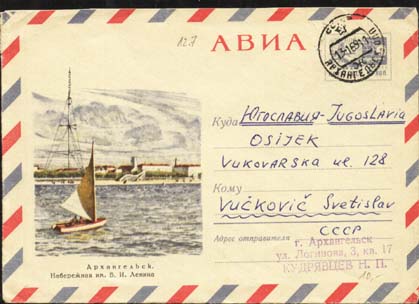 12.7
АВИА
АРХАНГЕЛЬСК
Куда Югославия-Jugoslavia
OSIJEK
VUKOVARSKA ul. 128
Кому
VUČKOVIČ Svetislav
СССР
Адрес отправителя г. Архангельск
ул. Логинова, 3, кв. 17
КУДРЯВЦЕВ Н. П.
Архангельск.
Набережная им. В. И. Ленина
10.-